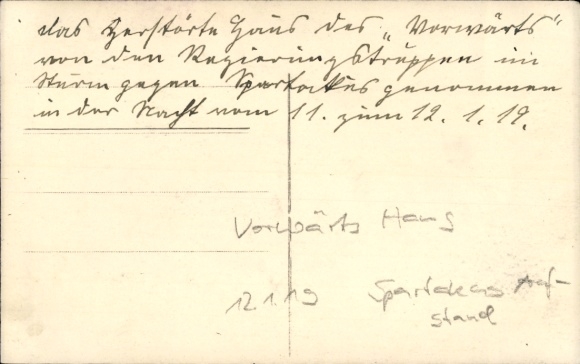 das zerstörte Haus des „Vorwärts"
von den Regierungstruppen im
Sturm gegen Spartakus genommen
in der Nacht vom 11. zum 12. 1. 19.
Vorwärts Haus
12.1.19 Spartakus Auf-
stand